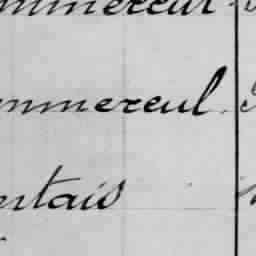 mmereul
mmereul
entais